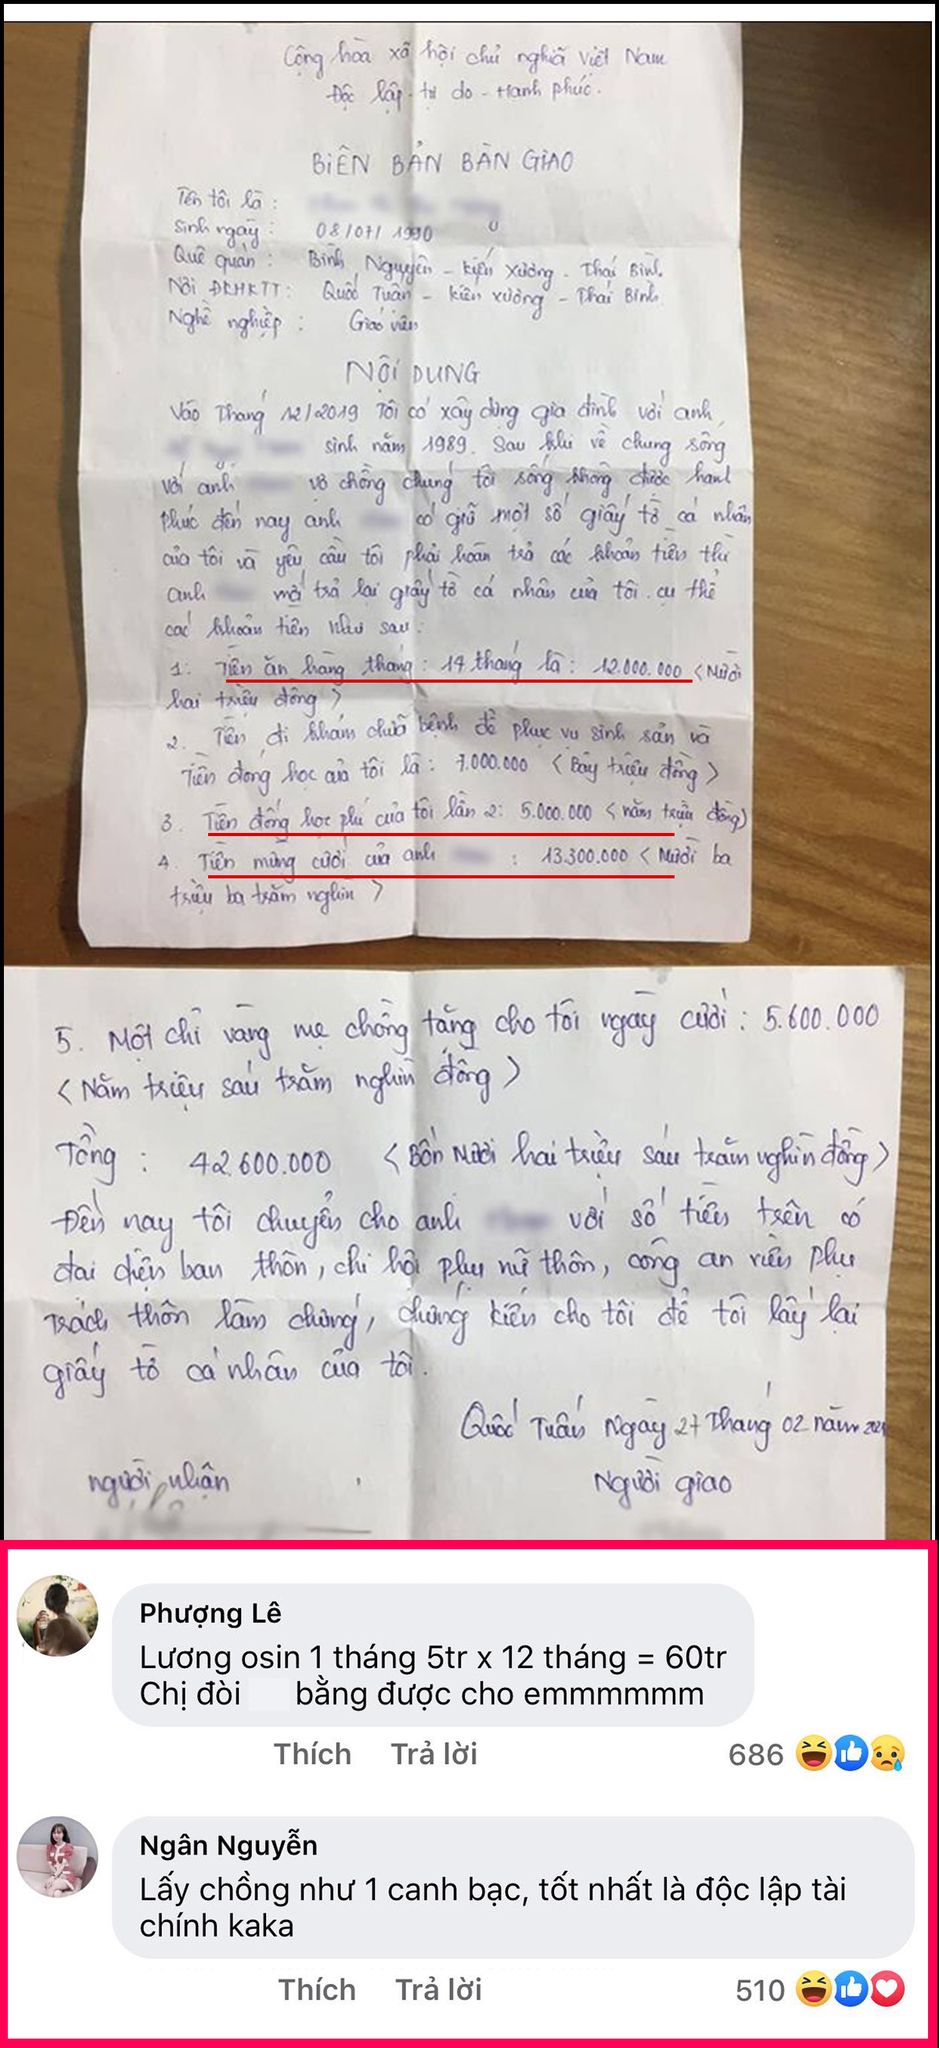 Cộng hòa xã hội chủ nghĩa Việt Nam
Độc lập - tự do - Hạnh phúc.
BIÊN BẢN BÀN GIAO
Tên tôi là :
Sinh ngày : 08/07/1990
Quê quán : Bình Nguyên - Kiến Xương - Thái Bình.
Nơi ĐKHKTT : Quốc Tuấn - Kiến Xương - Thái Bình.
Nghề nghiệp : Giáo viên
NỘI DUNG
Vào Tháng 12/2019 Tôi có xây dựng gia đình với anh
sinh năm 1989. Sau khi về chung sống
với anh vợ chồng chúng tôi sống không được hạnh
phúc đến nay anh có giữ một số giấy tờ cá nhân
của tôi và yêu cầu tôi phải hoàn trả các khoản tiền thì
anh mới trả lại giấy tờ cá nhân của tôi. cụ thể
các khoản tiền như sau :
1. Tiền ăn hàng tháng : 14 tháng là : 12.000.000 < Mười
hai triệu đồng >
2. Tiền đi khám chữa bệnh để phục vụ sinh sản và
Tiền đóng học của tôi là : 7.000.000 < Bảy triệu đồng >
3. Tiền đóng học phí của tôi lần 2 : 5.000.000 < năm triệu đồng)
4. Tiền mừng cưới của anh : 13.300.000 < Mười ba
triệu ba trăm nghìn >
5. Một chỉ vàng mẹ chồng tặng cho tôi ngày cưới : 5.600.000
< Năm triệu sáu trăm nghìn đồng >
Tổng : 42.600.000 < Bốn Mươi hai triệu sáu trăm nghìn đồng >
Đến nay tôi chuyển cho anh với số tiền trên có
đại diện ban thôn, chi hội phụ nữ thôn, công an viên phụ
trách thôn làm chứng, chứng kiến cho tôi để tôi lấy lại
giấy tờ cá nhân của tôi.
Quốc Tuấn Ngày 27 Tháng 02 năm
người nhận Người giao
Phượng Lê
Lương osin 1 tháng 5tr x 12 tháng = 60tr
Chị đòi bằng được cho emmmmmm
Thích Trả lời 686
Ngân Nguyễn
Lấy chồng như 1 canh bạc, tốt nhất là độc lập tài
chính kaka
Thích Trả lời 510